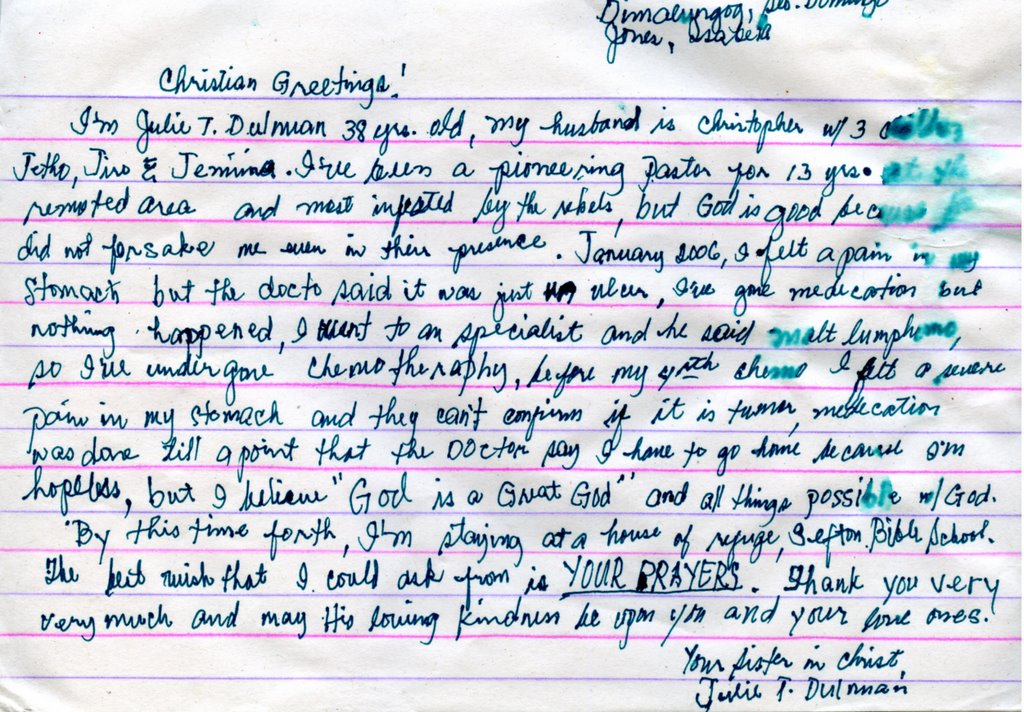 Dimalungog, Sto. Domingo
Jones, Isabela
Christian Greetings!
I'm Julie T. Dulnuan 38 yrs. old, my husband is Christopher w/ 3
Jetho, Jiro & Jemima. I've been a pioneering Pastor for 13 yrs. at the
remoted area and most infested by the rebels, but God is good because he
did not forsake me even in their presence. January 2006, I felt a pain in my
Stomach but the docto said it was just ulcer, I've gone medication but
nothing happened, I went to an specialist and he said malt lumphomo,
so I've undergone chemotheraphy, before my 4rth chemo I felt a severe
pain in my stomach and they can't confirm if it is tumor, medication
was done till a point that the Doctor say I have to go home because I'm
hopeless, but I believe "God is a Great God" and all things possible w/ God.
"By this time forth, I'm staying at a house of refuge, Bible School.
The best wish that I could ask from is YOUR PRAYERS. Thank you very
very much and may His loving kindness be upon you and your love ones.
Your Sister in Christ,
Julie T. Dulnuan